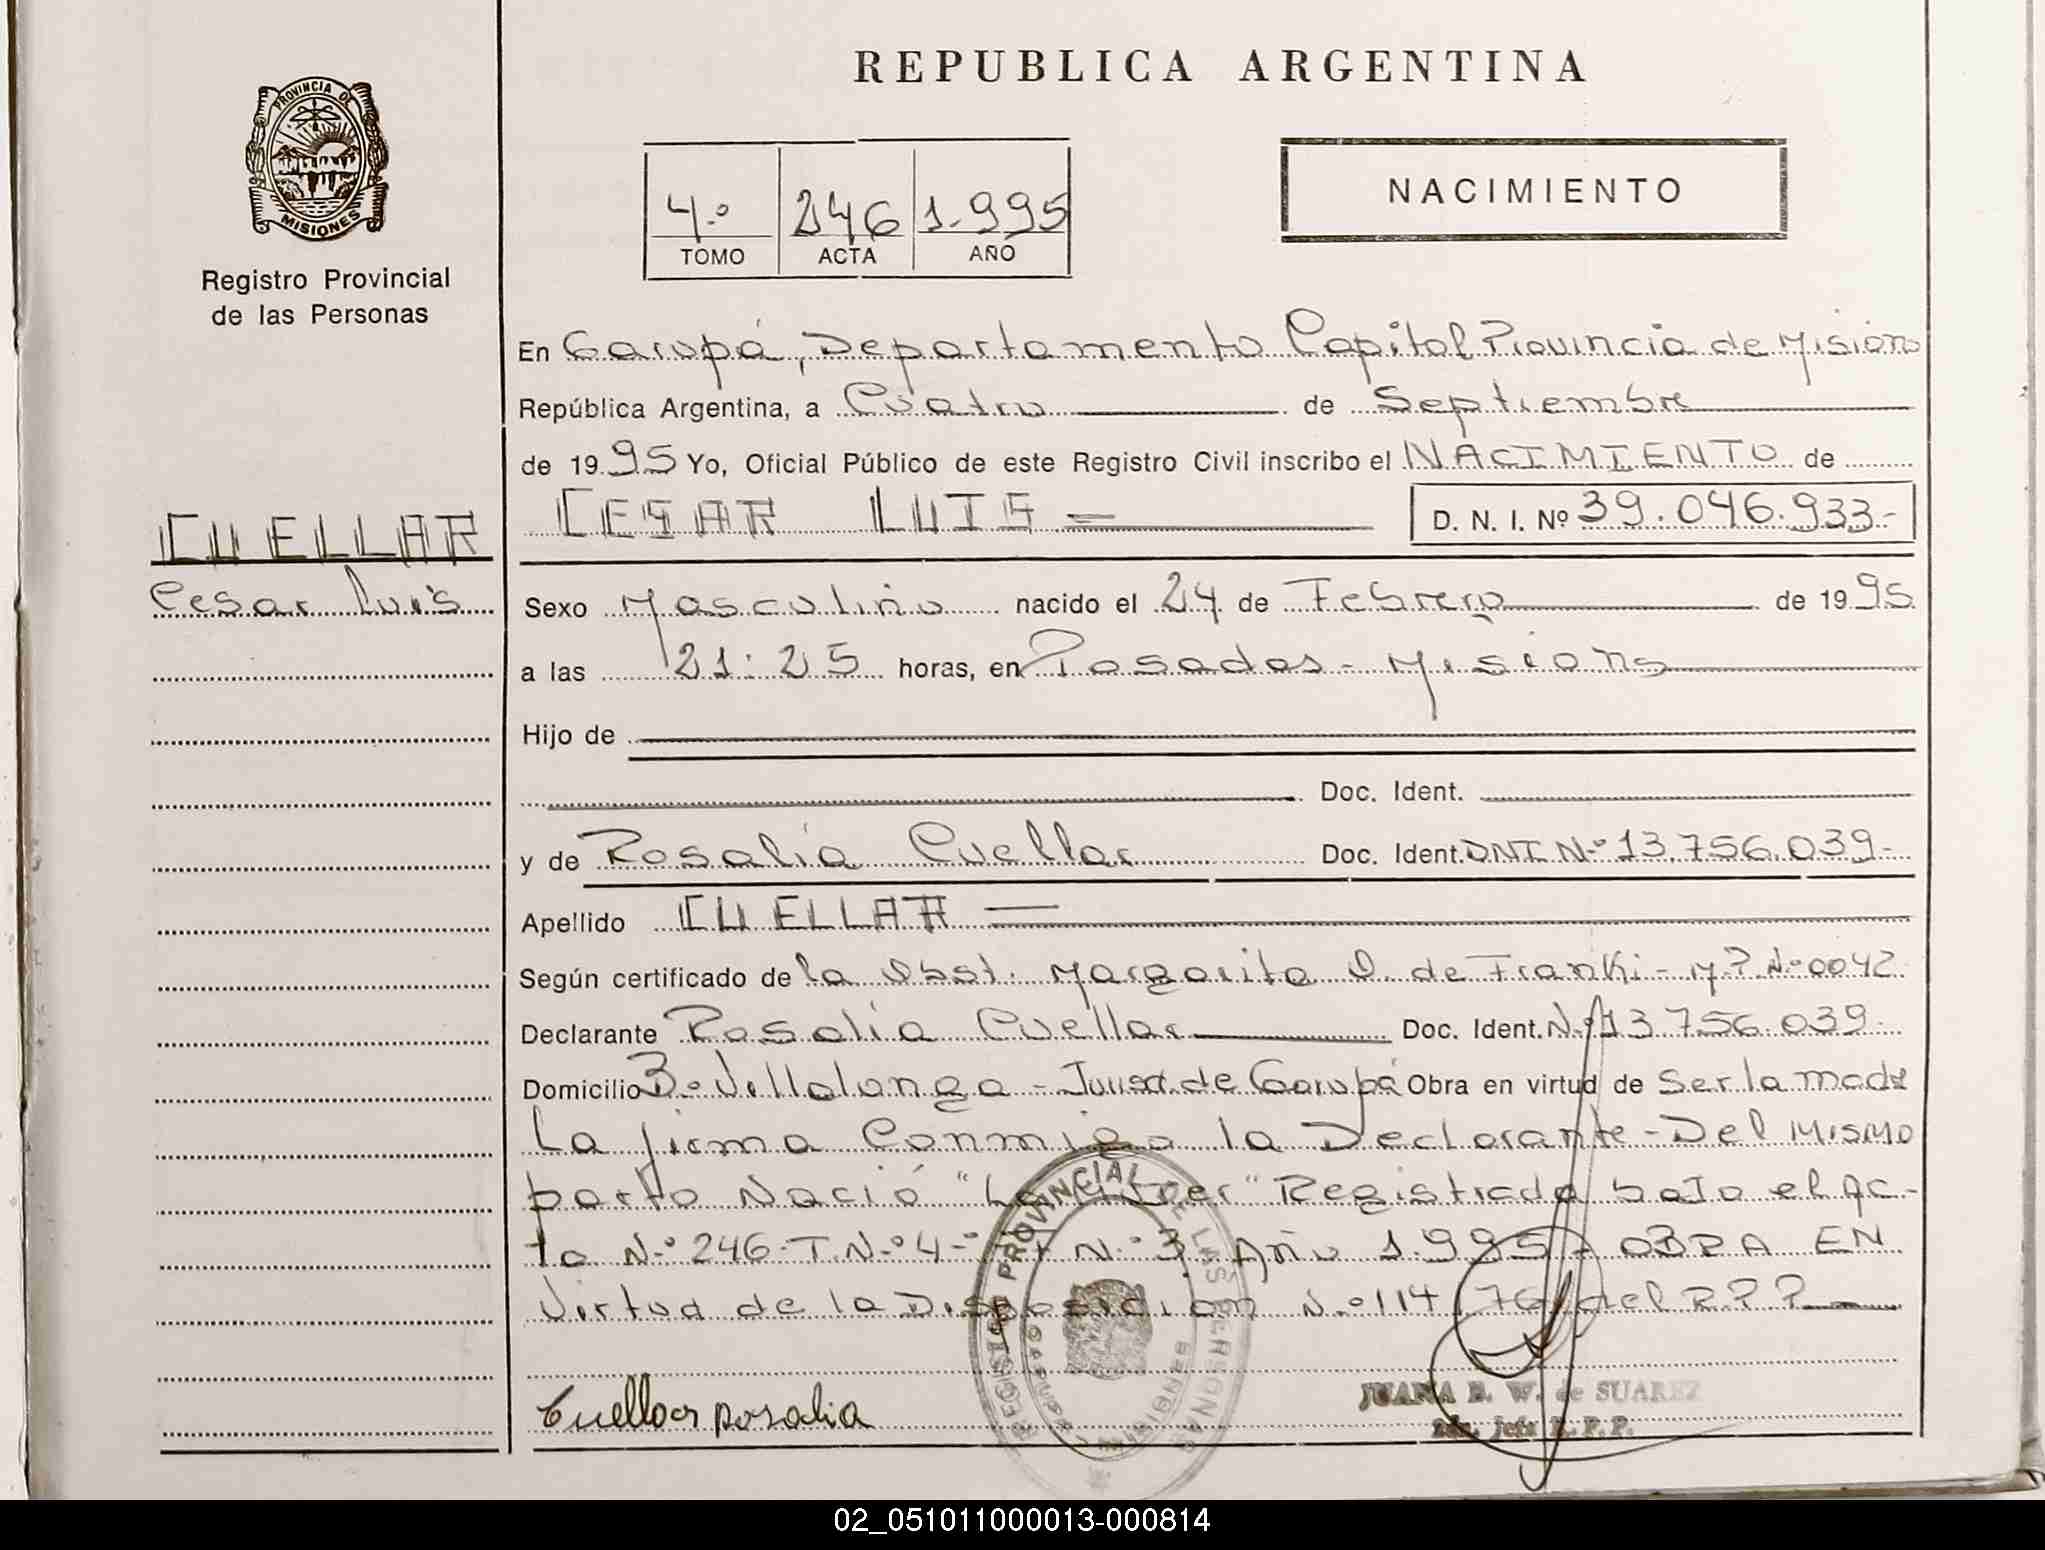 REPUBLICA ARGENTINA
PROVINCIA DE
MISIONES
Registro Provincial
de las Personas
4º 246 1.995
TOMO ACTA AÑO
NACIMIENTO
En Garupá, Departamento Capital Provincia de Misiones
República Argentina, a Cuatro de Septiembre
de 1995 Yo, Oficial Público de este Registro Civil inscribo el NACIMIENTO de
CUELLAR
Cesar Luis
CESAR LUIS D. N. I. Nº 39.046.933-
Sexo Masculino nacido el 24 de Febrero de 1995
a las 21:25 horas, en Posadas - Misiones
Hijo de
Doc. Ident.
y de Rosalía Cuellar Doc. Ident. DNI Nº 13.756.039-
Apellido CUELLAR
Según certificado de la Obst. Margarita O. de Franki - M.P. Nº 0042
Declarante Rosalía Cuellar Doc. Ident. Nº 13.756.039-
Domicilio Bº Villalonga - Jurisd. de Garupá Obra en virtud de Ser la madre
La firma Conmigo la Declarante - Del mismo
parto Nació "La Mujer" Registrada bajo el Ac-
ta Nº 246 T. Nº 4º Nº 3 Año 1.995 - OBRA EN
Virtud de la Disposición Nº 114/76 del R.P.P.
Cuellar Rosalia
REGISTRO PROVINCIAL DE LAS PERSONAS
JUANA B. W. de SUAREZ
R.P.P.
02_051011000013-000814